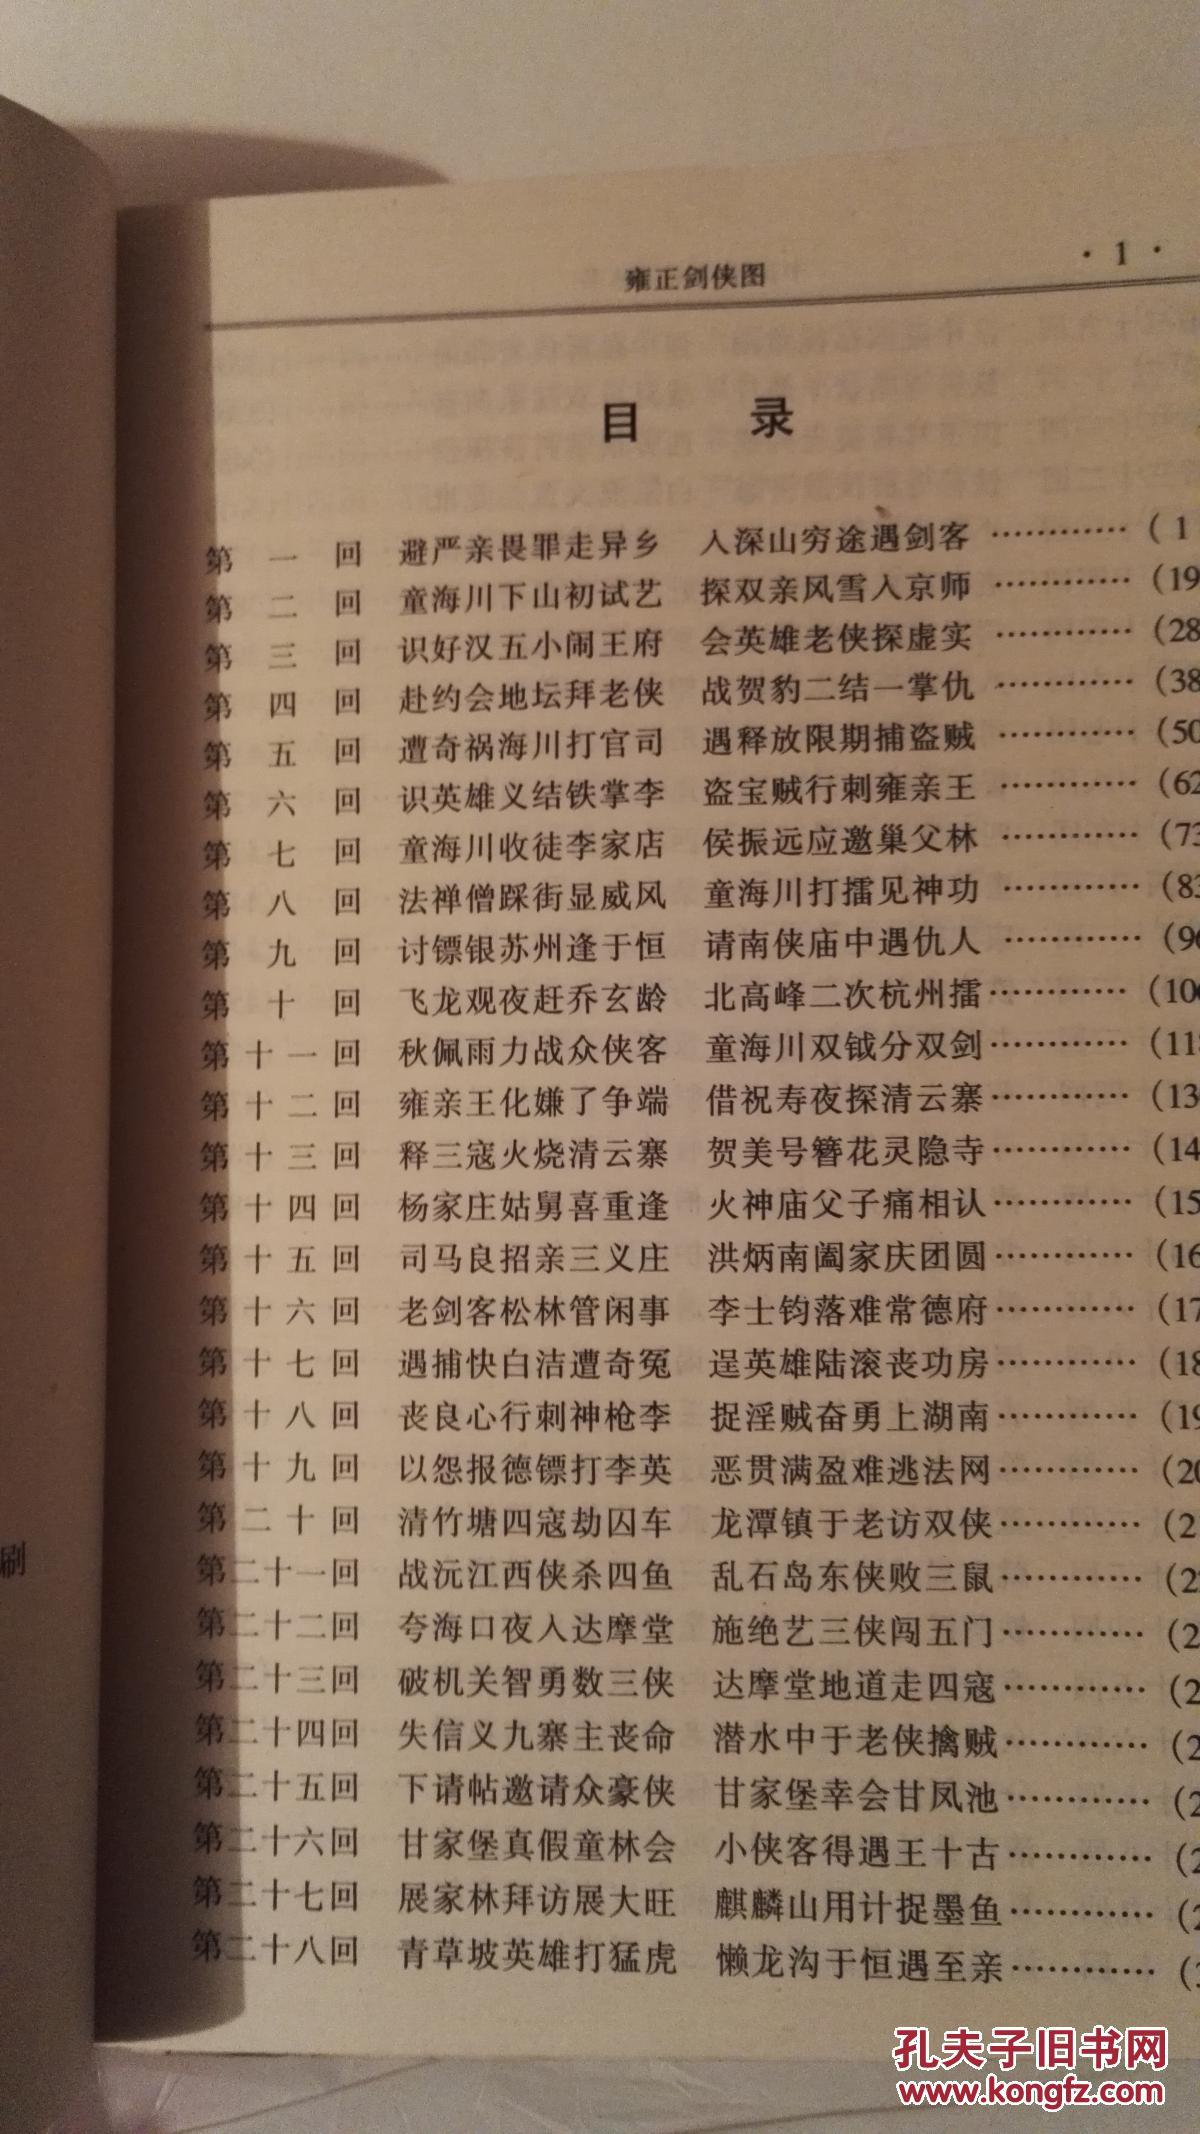 雍正剑侠图 ·1·
目 录
第一回 避严亲畏罪走异乡 入深山穷途遇剑客…………(1
第二回 童海川下山初试艺 探双亲风雪入京师…………(19
第三回 识好汉五小闹王府 会英雄老侠探虚实…………(28
第四回 赴约会地坛拜老侠 战贺豹二结一掌仇…………(38
第五回 遭奇祸海川打官司 遇释放限期捕盗贼…………(50
第六回 识英雄义结铁掌李 盗宝贼行刺雍亲王…………(62
第七回 童海川收徒李家店 侯振远应邀巢父林…………(73
第八回 法禅僧踩街显威风 童海川打擂见神功…………(83
第九回 讨镖银苏州逢于恒 请南侠庙中遇仇人…………(96
第十回 飞龙观夜赶乔玄龄 北高峰二次杭州擂…………(106
第十一回 秋佩雨力战众侠客 童海川双钺分双剑…………(11
第十二回 雍亲王化嫌了争端 借祝寿夜探清云寨…………(13
第十三回 释三寇火烧清云寨 贺美号簪花灵隐寺…………(14
第十四回 杨家庄姑舅喜重逢 火神庙父子痛相认…………(15
第十五回 司马良招亲三义庄 洪炳南阖家庆团圆…………(16
第十六回 老剑客松林管闲事 李士钧落难常德府…………(17
第十七回 遇捕快白洁遭奇冤 逞英雄陆滚丧功房…………(18
第十八回 丧良心行刺神枪李 捉淫贼奋勇上湖南…………(19
第十九回 以怨报德镖打李英 恶贯满盈难逃法网…………(20
第二十回 清竹塘四寇劫囚车 龙潭镇于老访双侠…………(2
第二十一回 战沅江西侠杀四鱼 乱石岛东侠败三鼠…………(2
第二十二回 夸海口夜入达摩堂 施绝艺三侠闯五门…………(2
第二十三回 破机关智勇数三侠 达摩堂地道走四寇…………(2
第二十四回 失信义九寨主丧命 潜水中于老侠擒贼…………(2
第二十五回 下请帖邀请众豪侠 甘家堡幸会甘凤池…………(2
第二十六回 甘家堡真假童林会 小侠客得遇王十古…………(2
第二十七回 展家林拜访展大旺 麒麟山用计捉墨鱼…………(2
第二十八回 青草坡英雄打猛虎 懒龙沟于恒遇至亲…………(
刷
孔夫子旧书网
www.kongfz.com